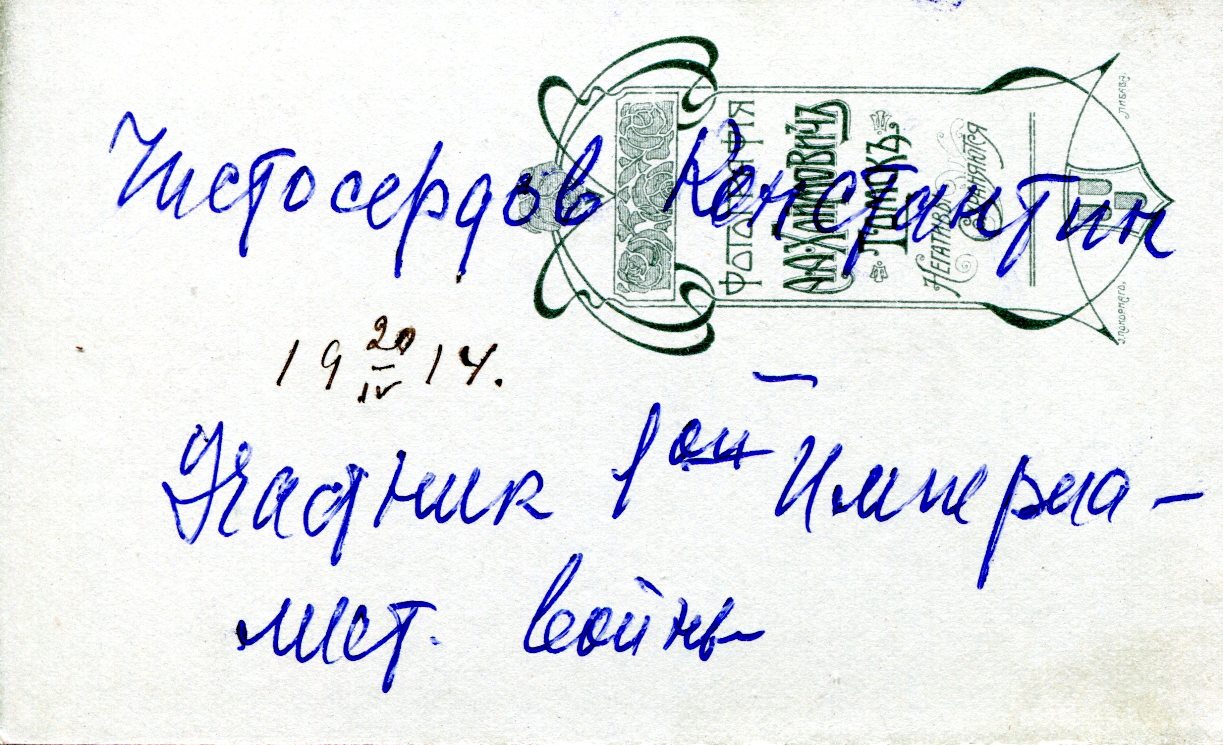 Чистосердов Константин
19 20/IV 14.
Участник 1ой Империа-
лист. войны
ФОТОГРАФІЯ
А.А.ХАИМОВИЧЪ
Г. ТОМСКЪ
НЕГАТИВЫ
СОХРАНЯЮТСЯ